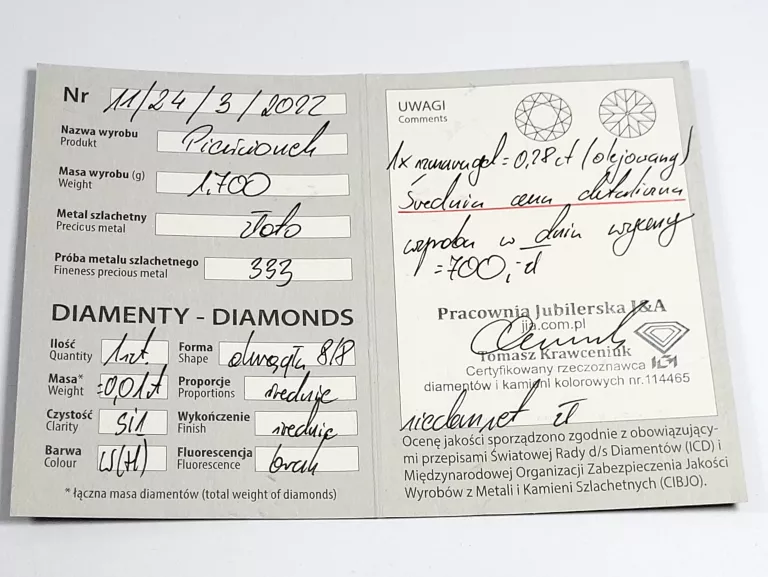 Nr 11/24/3/2022
Nazwa wyrobu Pierścionek
Produkt
Masa wyrobu (g) 1,700
Weight
Metal szlachetny złoto
Precicus metal
Próba metalu szlachetnego 333
Fineness precious metal
DIAMENTY - DIAMONDS
Ilość 1szt. Forma okrągła 8/8
Quantity Shape
Masa* =0,01ct Proporcje średnie
Weight Proportions
Czystość Si1 Wykończenie średnie
Clarity Finish
Barwa W(H) Fluorescencja brak
Colour Fluorescence
* łączna masa diamentów (total weight of diamonds)
UWAGI
Comments
1x szmaragd = 0,28ct (olejowany)
Średnia cena detaliczna
wyrobu w dniu wyceny
=700,- zł
Pracownia Jubilerska J&A
jia.com.pl
Tomasz Krawceniuk
Certyfikowany rzeczoznawca
diamentów i kamieni kolorowych nr.114465
siedemset zł
Ocenę jakości sporządzono zgodnie z obowiązujący-
mi przepisami Światowej Rady d/s Diamentów (ICD) i
Międzynarodowej Organizacji Zabezpieczenia Jakości
Wyrobów z Metali i Kamieni Szlachetnych (CIBJO).